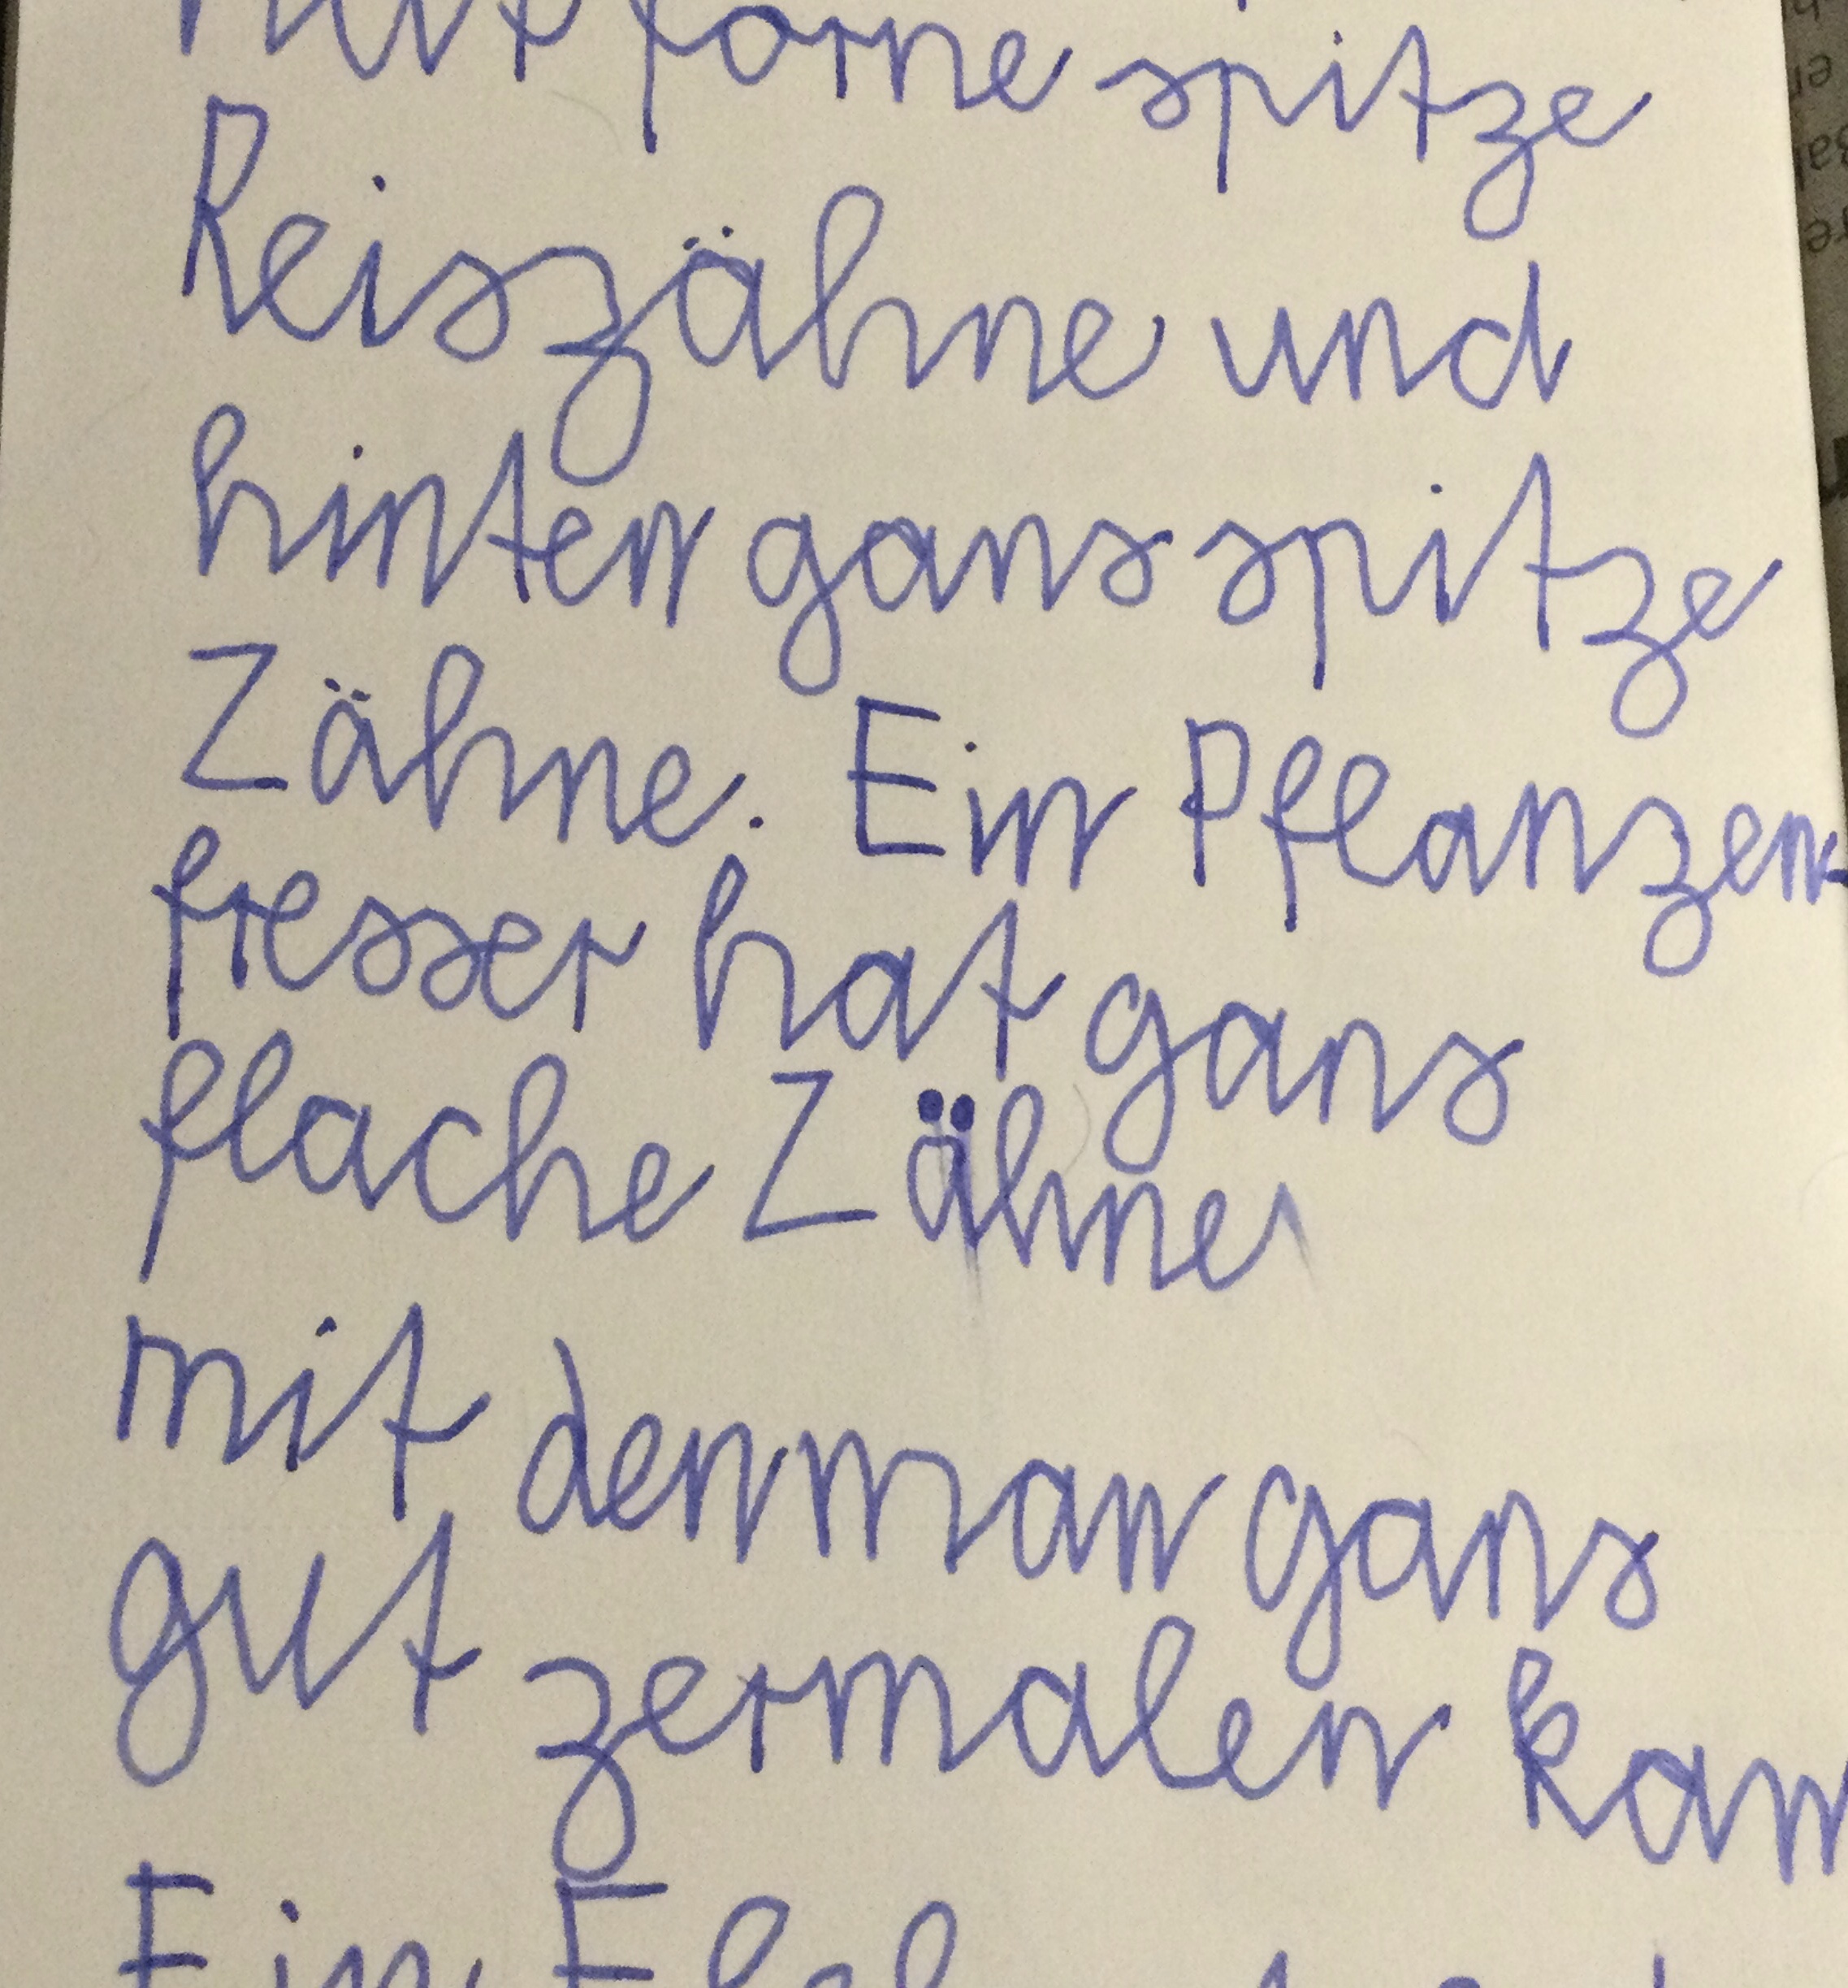 forne spitze
Reiszähne und
hinten gans spitze
Zähne. Ein Pflanzen-
fresser hat gans
flache Zähne
mit den man gans
gut zermalen kan
Ein